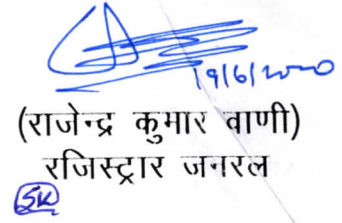 19/6/2020
(राजेन्द्र कुमार वाणी)
रजिस्ट्रार जनरल
SK